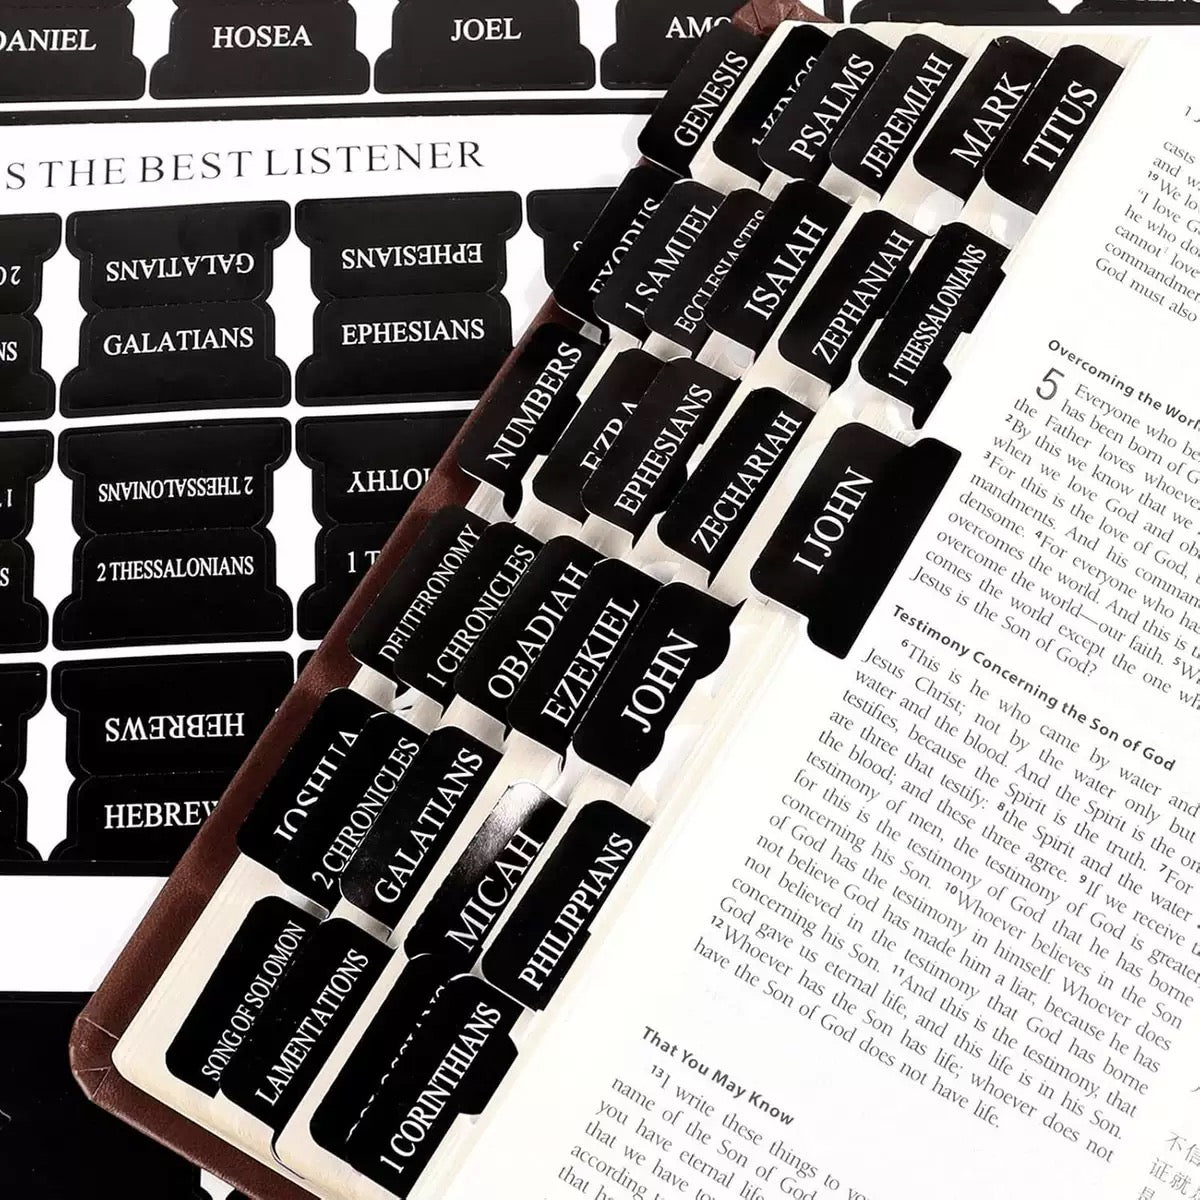 DANIEL
HOSEA
JOEL
S THE BEST LISTENER
GALATIANS
GALATIANS
EPHESIANS
EPHESIANS
2 THESSALONIANS
2 THESSALONIANS
HEBREWS
GENESIS
1 KINGS
PSALMS
JEREMIAH
MARK
TITUS
EXODUS
1 SAMUEL
ECCLESIASTES
ISAIAH
ZEPHANIAH
1 THESSALONIANS
NUMBERS
EZRA
EPHESIANS
ZECHARIAH
I JOHN
DEUTERONOMY
1 CHRONICLES
OBADIAH
EZEKIEL
JOHN
JOSHUA
2 CHRONICLES
GALATIANS
MICAH
PHILIPPIANS
SONG OF SOLOMON
LAMENTATIONS
1 CORINTHIANS
casts
and
19 We lo
"I love G
he who do
cannot love
commandmen
God must also
Overcoming the Worl
5 Everyone who be
has been born of G
the Father loves whoeve
2 By this we know that we
when we love God and ob
3 For this is the love of God, t
mandments. And his comma
densome. 4 For everyone who ha
overcome the world. And this is t
overcomes the world—our faith. 5
comes the world except the one wh
Jesus is the Son of God?
Testimony Concerning the Son of God
6 This is he who came by water and
Jesus Christ; not by the water only bu
water and the blood. And the Spirit is the one
testifies, because the Spirit is the truth. 7 For
are three that testify: 8 the Spirit and the water
the blood; and these three agree. 9 If we receive t
testimony of men, the testimony of God is greater
for this is the testimony of God that he has borne
concerning his Son. 10 Whoever believes in the Son
of God has the testimony in himself. Whoever does
not believe God has made him a liar, because he has
not believed in the testimony that God has borne
concerning his Son. 11 And this is the testimony, that
God gave us eternal life, and this life is in his Son.
12 Whoever has the Son has life; whoever does not
have the Son of God does not have life.
That You May Know
13 I write these things to you
name of the Son of God
you have eternal life
that we have to
according
that he
不信
证就